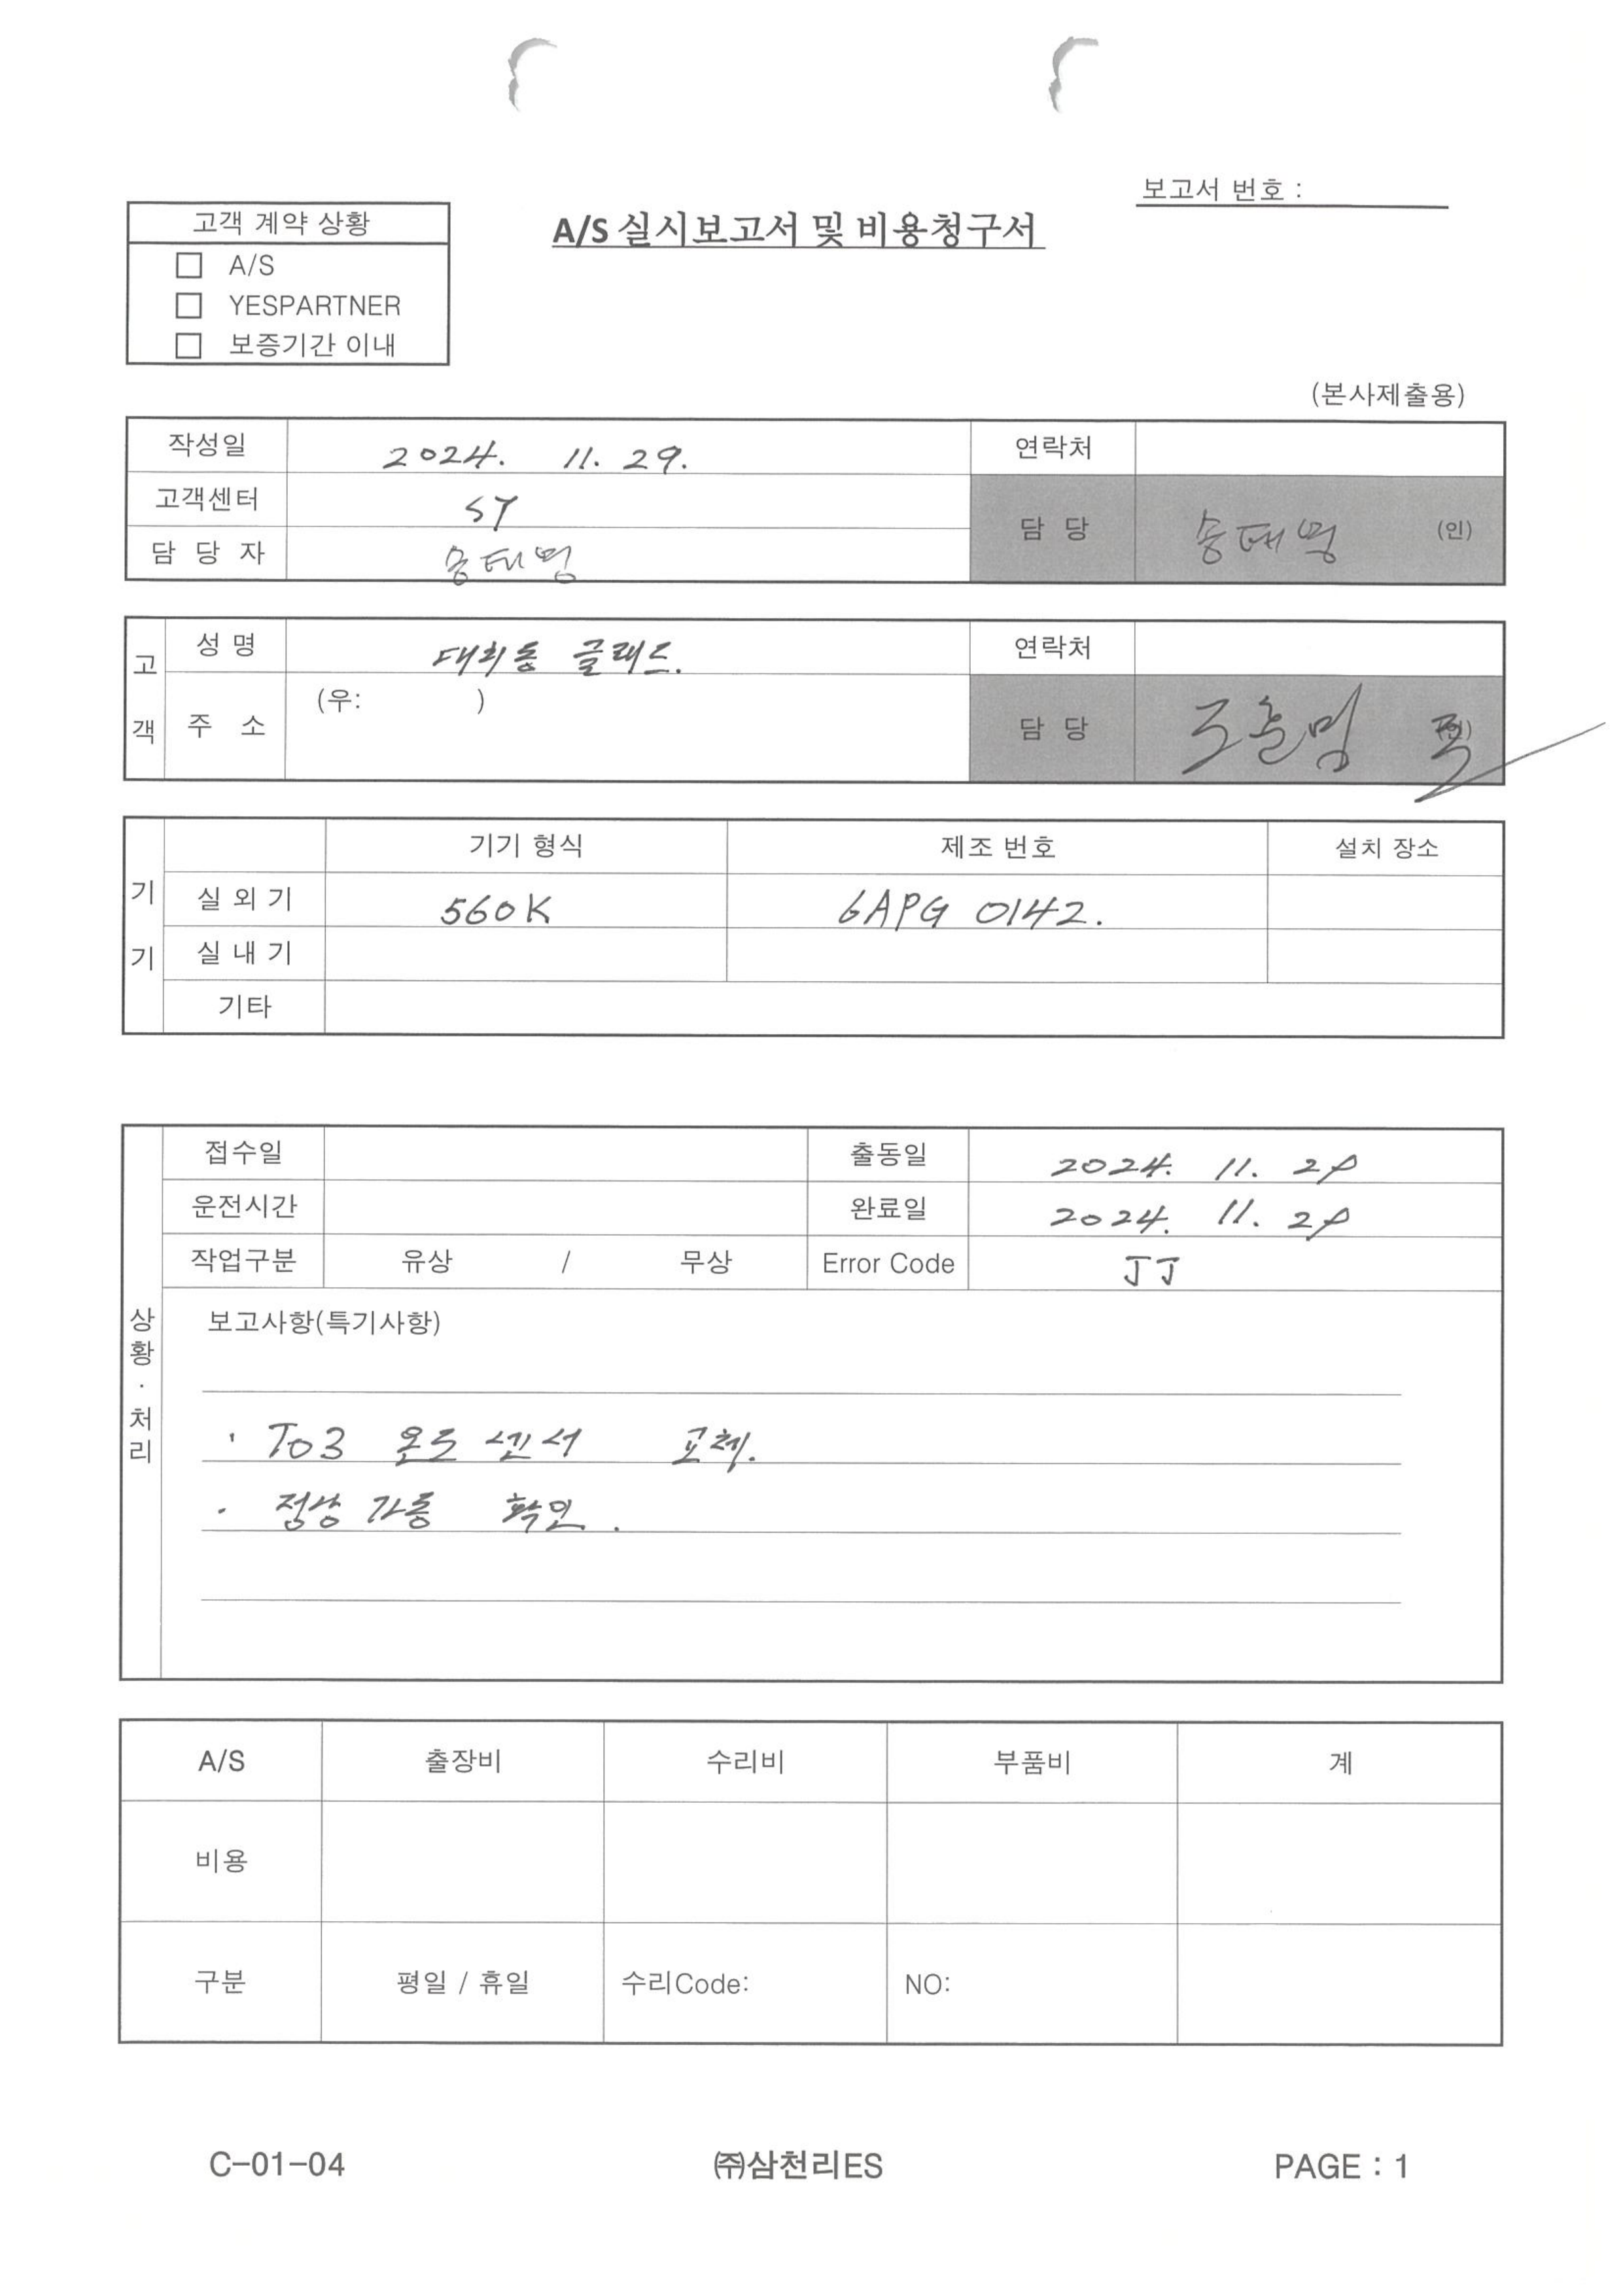 보고서 번호 :
고객 계약 상황
A/S 실시보고서 및 비용청구서
☐ A/S
☐ YESPARTNER
☐ 보증기간 이내
(본사제출용)
작성일 2024. 11. 29. 연락처
고객센터 ST
담 당 자 송태명 담 당 송태명 (인)
고객 성 명 대치동 글래드. 연락처
주 소 (우: ) 담 당 (인)
기기 기기 형식 제조 번호 설치 장소
실 외 기 560K 6APG 0142.
실 내 기
기타
상황·처리
접수일 출동일 2024. 11. 28
운전시간 완료일 2024. 11. 28
작업구분 유상 / 무상 Error Code JJ
보고사항(특기사항)
· To3 온도 센서 교체.
· 정상 가동 확인.
A/S 출장비 수리비 부품비 계
비용
구분 평일 / 휴일 수리Code: NO:
C-01-04 ㈜삼천리ES PAGE : 1